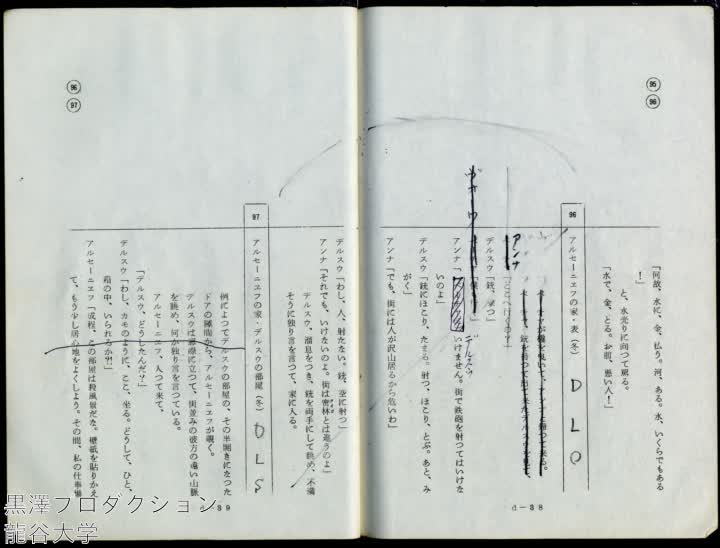 95
96
「何故、水に、金、払う。河、ある。水、いくらでもある
！」
と、水売りに向つて罵る。
「水で、金、とる。お前、悪い人！」
96
アルセーニエフの家・表（冬）
DLO
銃を持つて出て来たデルスウを見て、
アンナ
「どこへ行くの？」
デルスウ「銃、撃つ」
アンナ「
いけません。街で鉄砲を射つてはいけな
いのよ」
デルスウ「銃にほこり、たまる。射つ、ほこり、とぶ。あと、み
がく」
アンナ「でも、街には人が沢山居るから危いわ」
d－38
96
97
デルスウ「わし、人、射たない。銃、空に射つ」
アンナ「それでも、いけないのよ。街は密林とは違うのよ」
デルスウ、溜息をつき、銃を両手にして眺め、不満
そうに独り言を言つて、家に入る。
97
アルセーニエフの家・デルスウの部屋（冬）
DLS
例によつてデルスウの部屋の、その半開きになつた
ドアの隙間から、アルセーニエフが覗く。
デルスウは窓際に立つて、街並みの彼方の遠い山脈
を眺め、何か独り言を言つている。
アルセーニエフ、入つて来て、
「デルスウ、どうしたんだ？」
デルスウ「わし、カモのように、ここ、坐る。どうして、ひと、
箱の中、いられるか?!」
アルセーニエフ「成程、この部屋は殺風景だな。壁紙を貼りかえ
て、もう少し居心地をよくしよう。その間、私の仕事場
d－39
黒澤プロダクション
龍谷大学